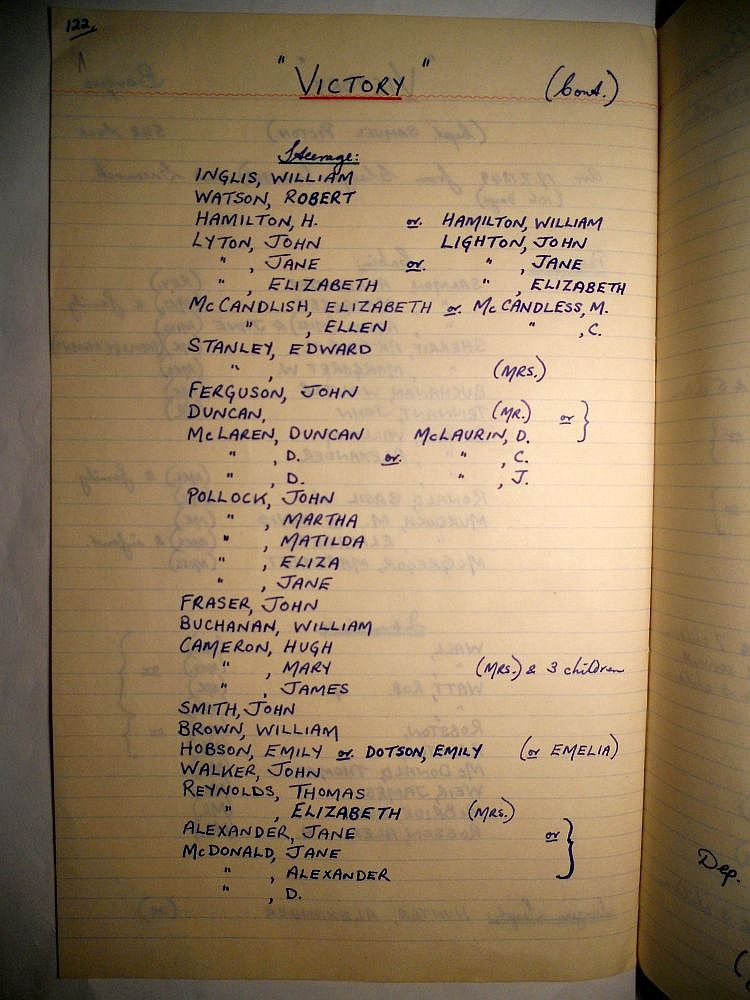 122.
"VICTORY" (Cont.)
Steerage:
INGLIS, WILLIAM
WATSON, ROBERT
HAMILTON, H. or. HAMILTON, WILLIAM
LYTON, JOHN LIGHTON, JOHN
" , JANE or. " , JANE
" , ELIZABETH " , ELIZABETH
McCANDLISH, ELIZABETH or. McCANDLESS, M.
" , ELLEN " , C.
STANLEY, EDWARD
" , (MRS.)
FERGUSON, JOHN
DUNCAN, (MR.) or }
McLAREN, DUNCAN McLAURIN, D.
" , D. or. " , C.
" , D. " , J.
POLLOCK, JOHN
" , MARTHA
" , MATILDA
" , ELIZA
" , JANE
FRASER, JOHN
BUCHANAN, WILLIAM
CAMERON, HUGH
" , MARY (MRS.) & 3 children
" , JAMES
SMITH, JOHN
BROWN, WILLIAM
HOBSON, EMILY or. DOTSON, EMILY (or EMELIA)
WALKER, JOHN
REYNOLDS, THOMAS
" , ELIZABETH (MRS.)
ALEXANDER, JANE or }
McDONALD, JANE
" , ALEXANDER
" , D.
Dep.